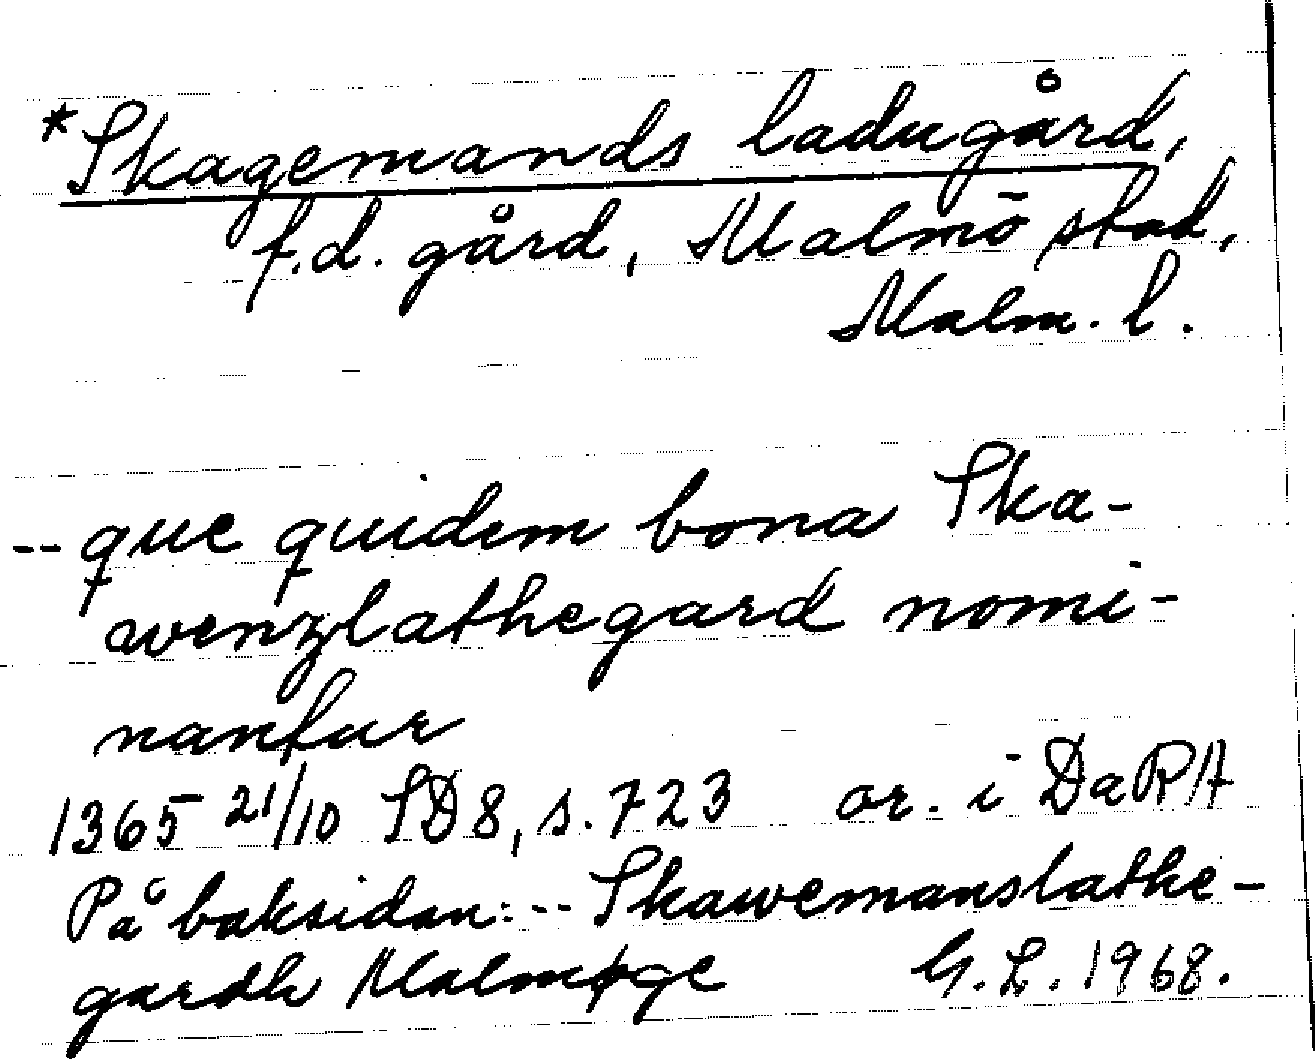 *Skagemands ladugård,
f.d. gård, Malmö stad,
Malm. l.
-- que quidem bona Ska-
wenzlathegard nomi-
nantur
1365 21/10 SD8, s. 723 or. i DaRA
På baksidan: -- Skawemanslathe-
gardh Malmøge G.L. 1968.